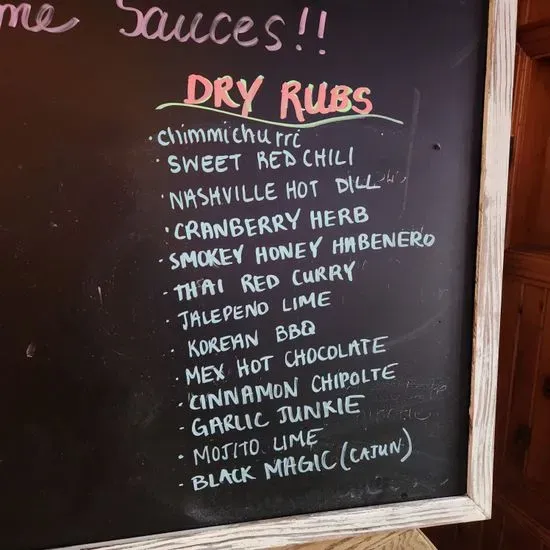 me Sauces!!
DRY RUBS
· chimmichurri
· SWEET RED CHILI
· NASHVILLE HOT DILL
· CRANBERRY HERB
· SMOKEY HONEY HABENERO
· THAI RED CURRY
· JALEPENO LIME
· KOREAN BBQ
· MEX HOT CHOCOLATE
· CINNAMON CHIPOLTE
· GARLIC JUNKIE
· MOJITO LIME
· BLACK MAGIC (CAJUN)